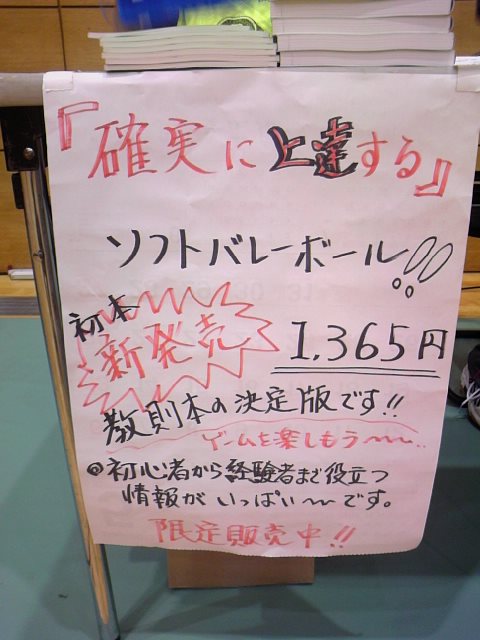 『確実に上達する』
ソフトバレーボール!!
初本
新発売
1,365円
教則本の決定版です!!
ゲームを楽しもう〜〜〜..
●初心者から経験者まで役立つ
情報がいっぱい〜です。
限定販売中!!